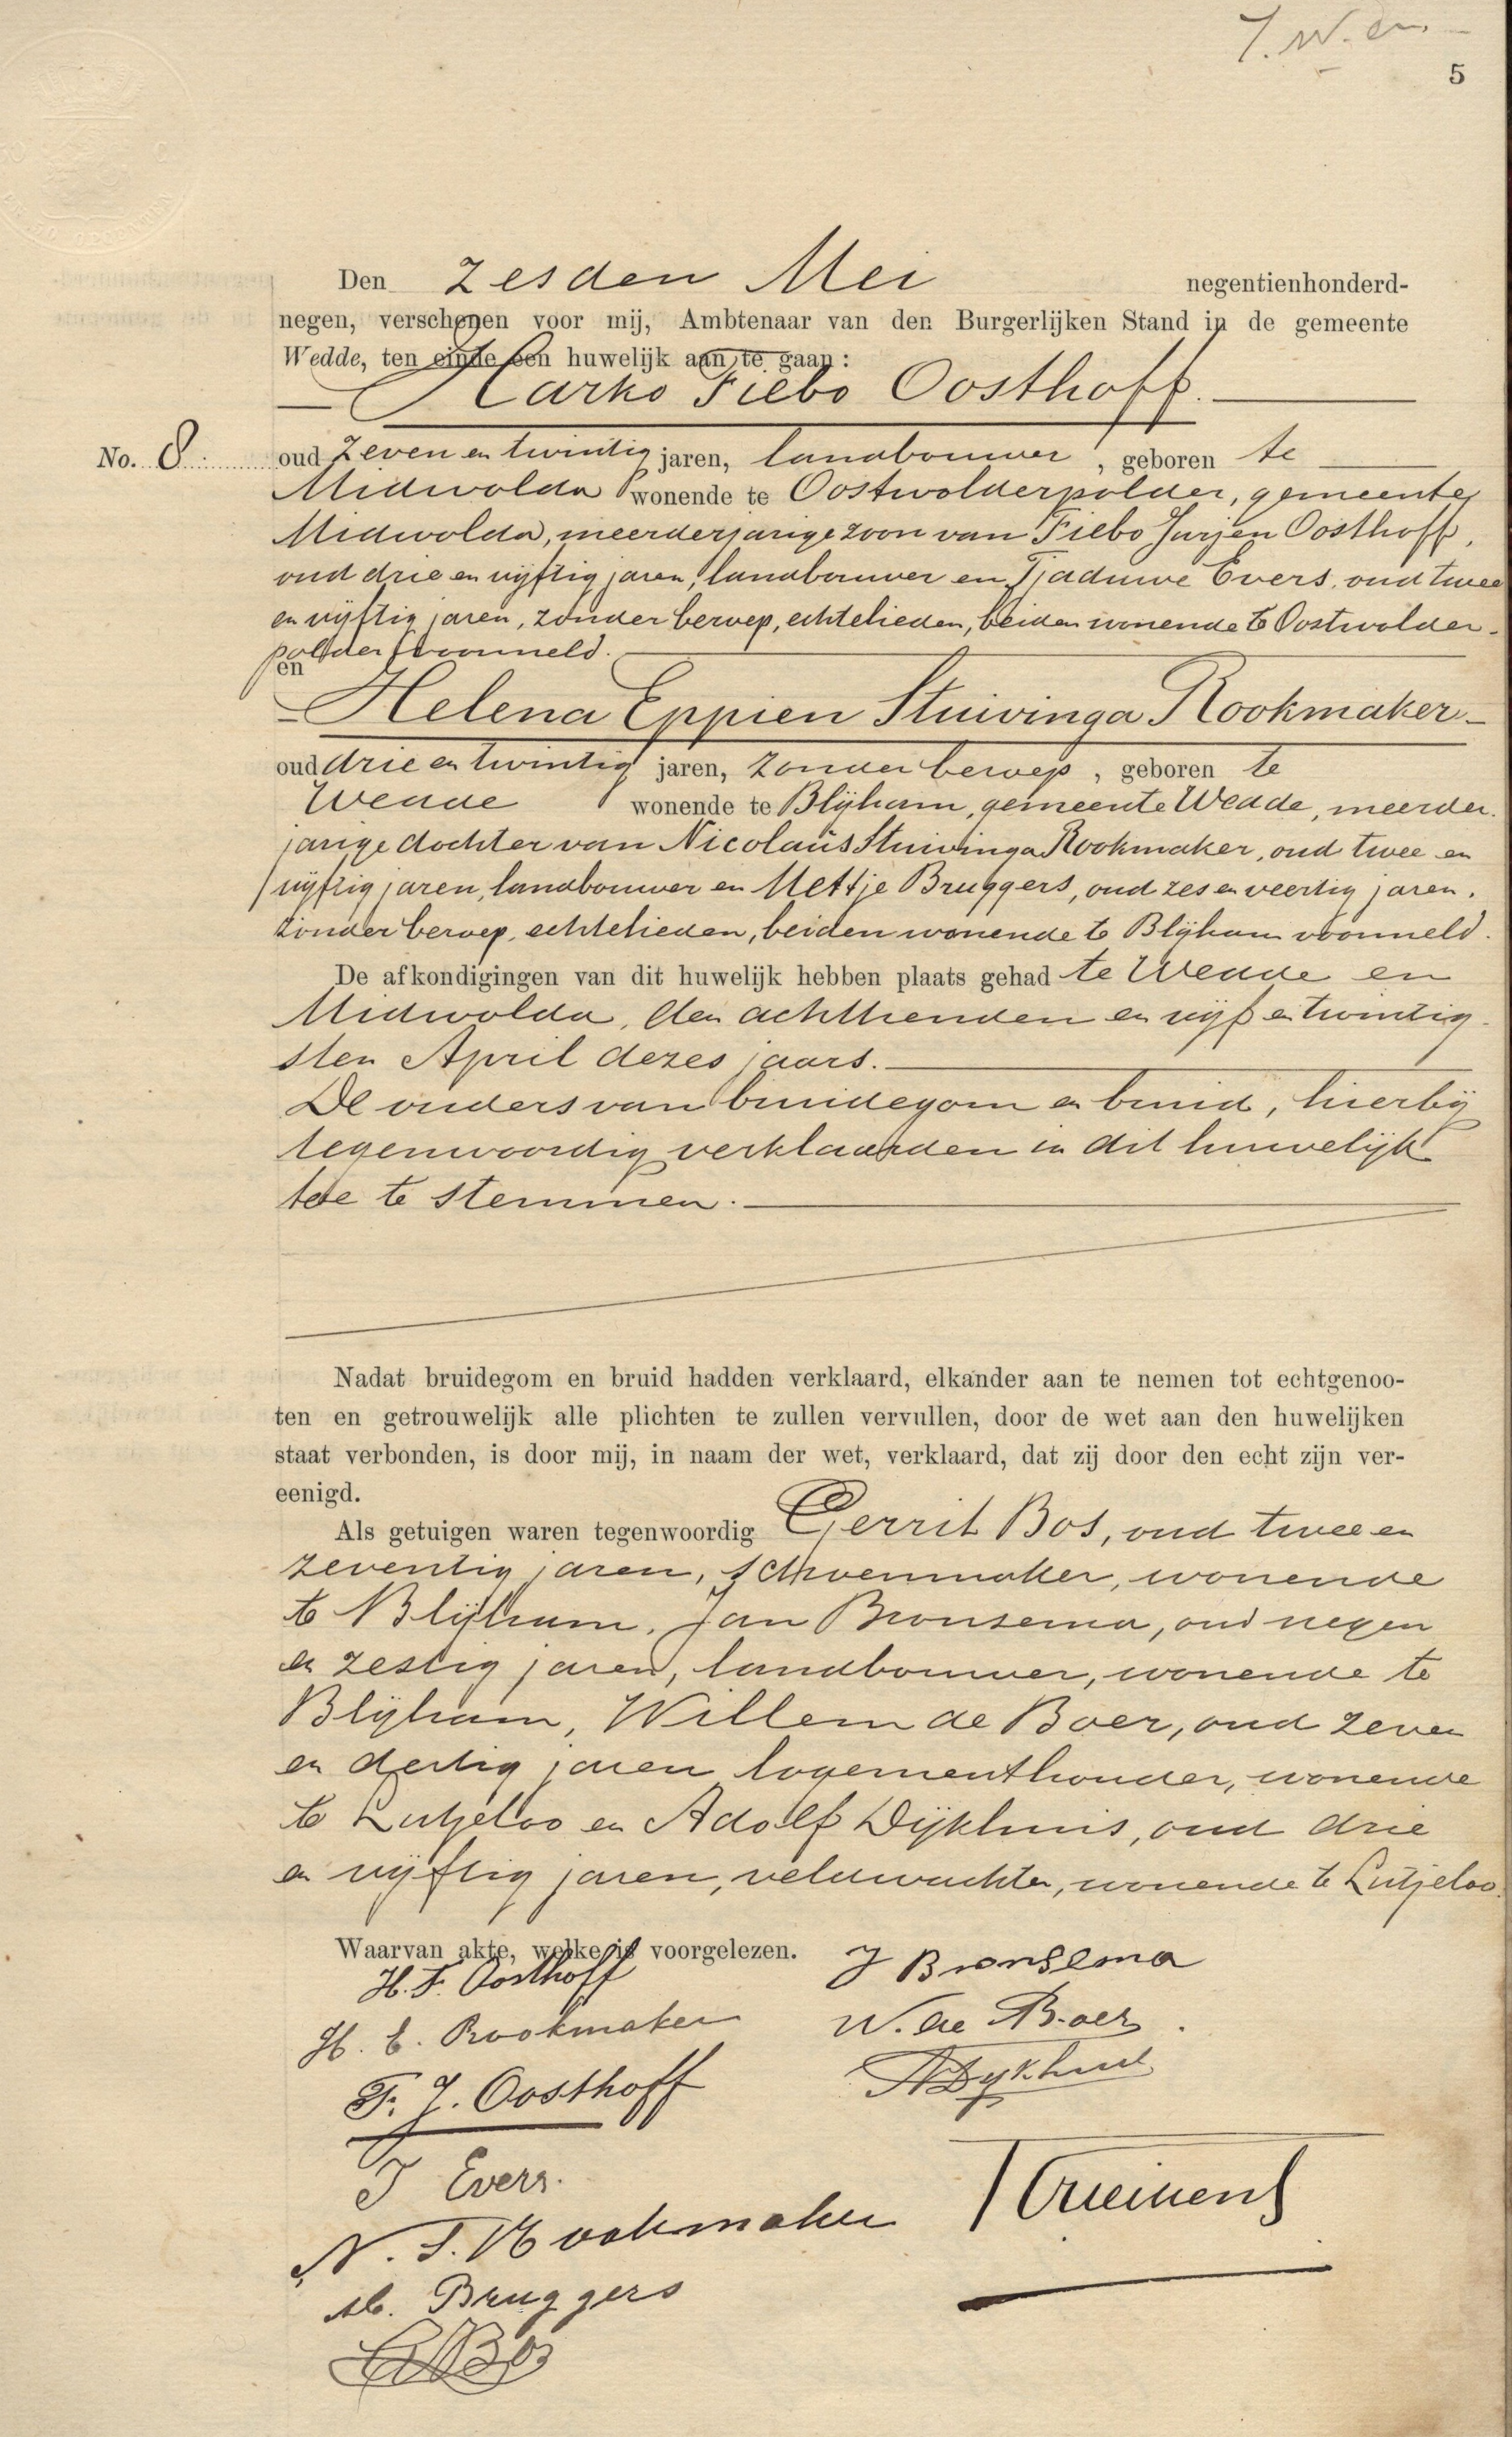 5
Den zesden Mei negentienhonderd-
negen, verschenen voor mij, Ambtenaar van den Burgerlijken Stand in de gemeente
Wedde, ten einde een huwelijk aan te gaan:
Harko Fiebo Oosthoff.
No. 8. oud zeven en twintig jaren, landbouwer, geboren te
Midwolda wonende te Oostwolderpolder, gemeente
Midwolda, meerderjarige zoon van Fiebo Jurjen Oosthoff,
oud drie en vijftig jaren, landbouwer en Tjaduwe Evers, oud twee
en vijftig jaren, zonder beroep, echtelieden, beiden wonende te Oostwolder-
polder voormeld.
en
Helena Eppien Stuivinga Rookmaker
oud drie en twintig jaren, zonder beroep, geboren te
Wedde wonende te Blijham, gemeente Wedde, meerder-
jarige dochter van Nicolaüs Stuivinga Rookmaker, oud twee en
vijftig jaren, landbouwer en Mettje Bruggers, oud zes en veertig jaren.
zonder beroep, echtelieden, beiden wonende te Blijham voormeld.
De afkondigingen van dit huwelijk hebben plaats gehad te Wedde en
Midwolda, den achttienden en vijf en twintig-
sten April dezes jaars.
De ouders van bruidegom en bruid, hierbij
tegenwoordig verklaarden in dit huwelijk
toe te stemmen.
Nadat bruidegom en bruid hadden verklaard, elkander aan te nemen tot echtgenoo-
ten en getrouwelijk alle plichten te zullen vervullen, door de wet aan den huwelijken
staat verbonden, is door mij, in naam der wet, verklaard, dat zij door den echt zijn ver-
eenigd.
Als getuigen waren tegenwoordig Gerrit Bos, oud twee en
zeventig jaren, schoenmaker, wonende
te Blijham, Jan Bronsema, oud negen
en zestig jaren, landbouwer, wonende te
Blijham, Willem de Boer, oud zeven
en dertig jaren logementhouder, wonende
te Lutjeloo en Adolf Dijkhuis, oud drie
en vijftig jaren, veldwachter, wonende te Lutjeloo.
Waarvan akte, welke is voorgelezen.
H. F. Oosthoff
J Bronsema
H. E. Rookmaker
W. de Boer.
F. J. Oosthoff
A Dykhuis
T Evers.
N. S. Rookmaker
M. Bruggers
G Bos